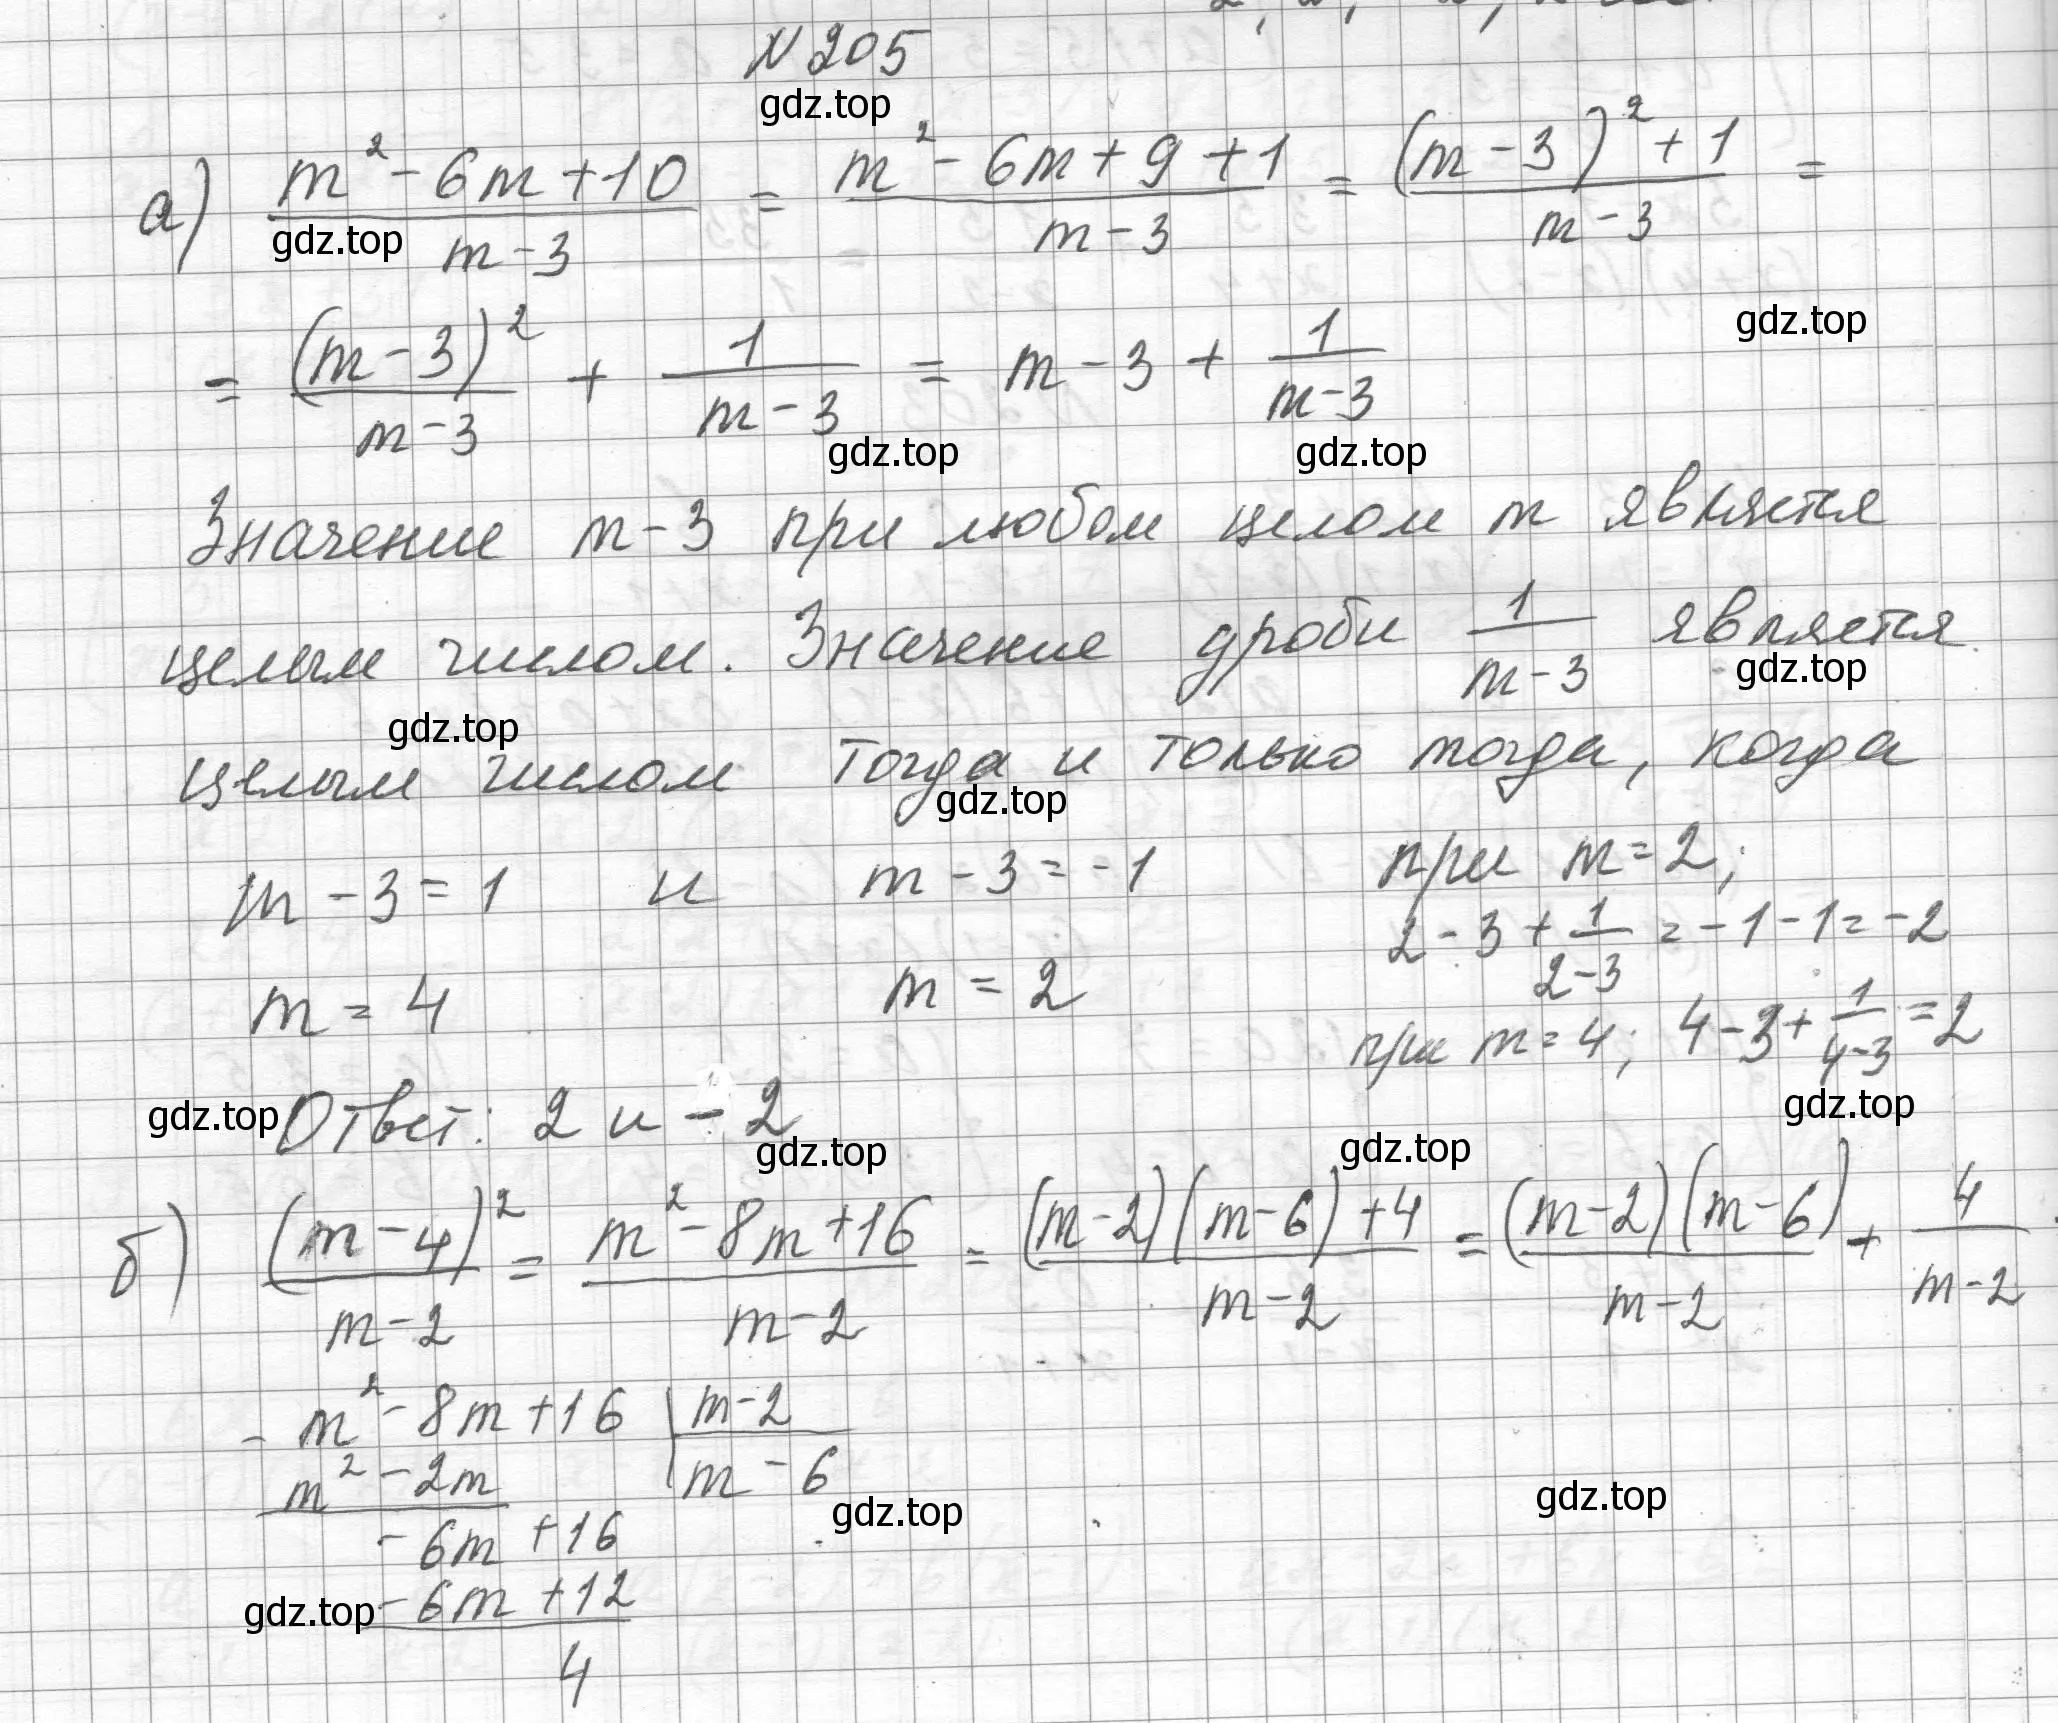 N 205
gdz.top
а) (m² - 6m + 10)/(m - 3) = (m² - 6m + 9 + 1)/(m - 3) = ((m - 3)² + 1)/(m - 3) =
gdz.top
= (m - 3)²/(m - 3) + 1/(m - 3) = m - 3 + 1/(m - 3)
gdz.top
gdz.top gdz.top
Значение m - 3 при любом целом m является
целым числом. Значение дроби 1/(m - 3) является
gdz.top
gdz.top
целым числом тогда и только тогда, когда
gdz.top
m - 3 = 1 и m - 3 = -1
m = 4 m = 2
при m = 2;
2 - 3 + 1/(2 - 3) = -1 - 1 = -2
при m = 4; 4 - 3 + 1/(4 - 3) = 2
gdz.top
gdz.top Ответ: 2 и -2
gdz.top gdz.top
б) (m - 4)²/(m - 2) = (m² - 8m + 16)/(m - 2) = ((m - 2)(m - 6) + 4)/(m - 2) = (m - 2)(m - 6)/(m - 2) + 4/(m - 2)
- m² - 8m + 16 | m - 2
m² - 2m | m - 6
gdz.top gdz.top
- 6m + 16
gdz.top - 6m + 12
4